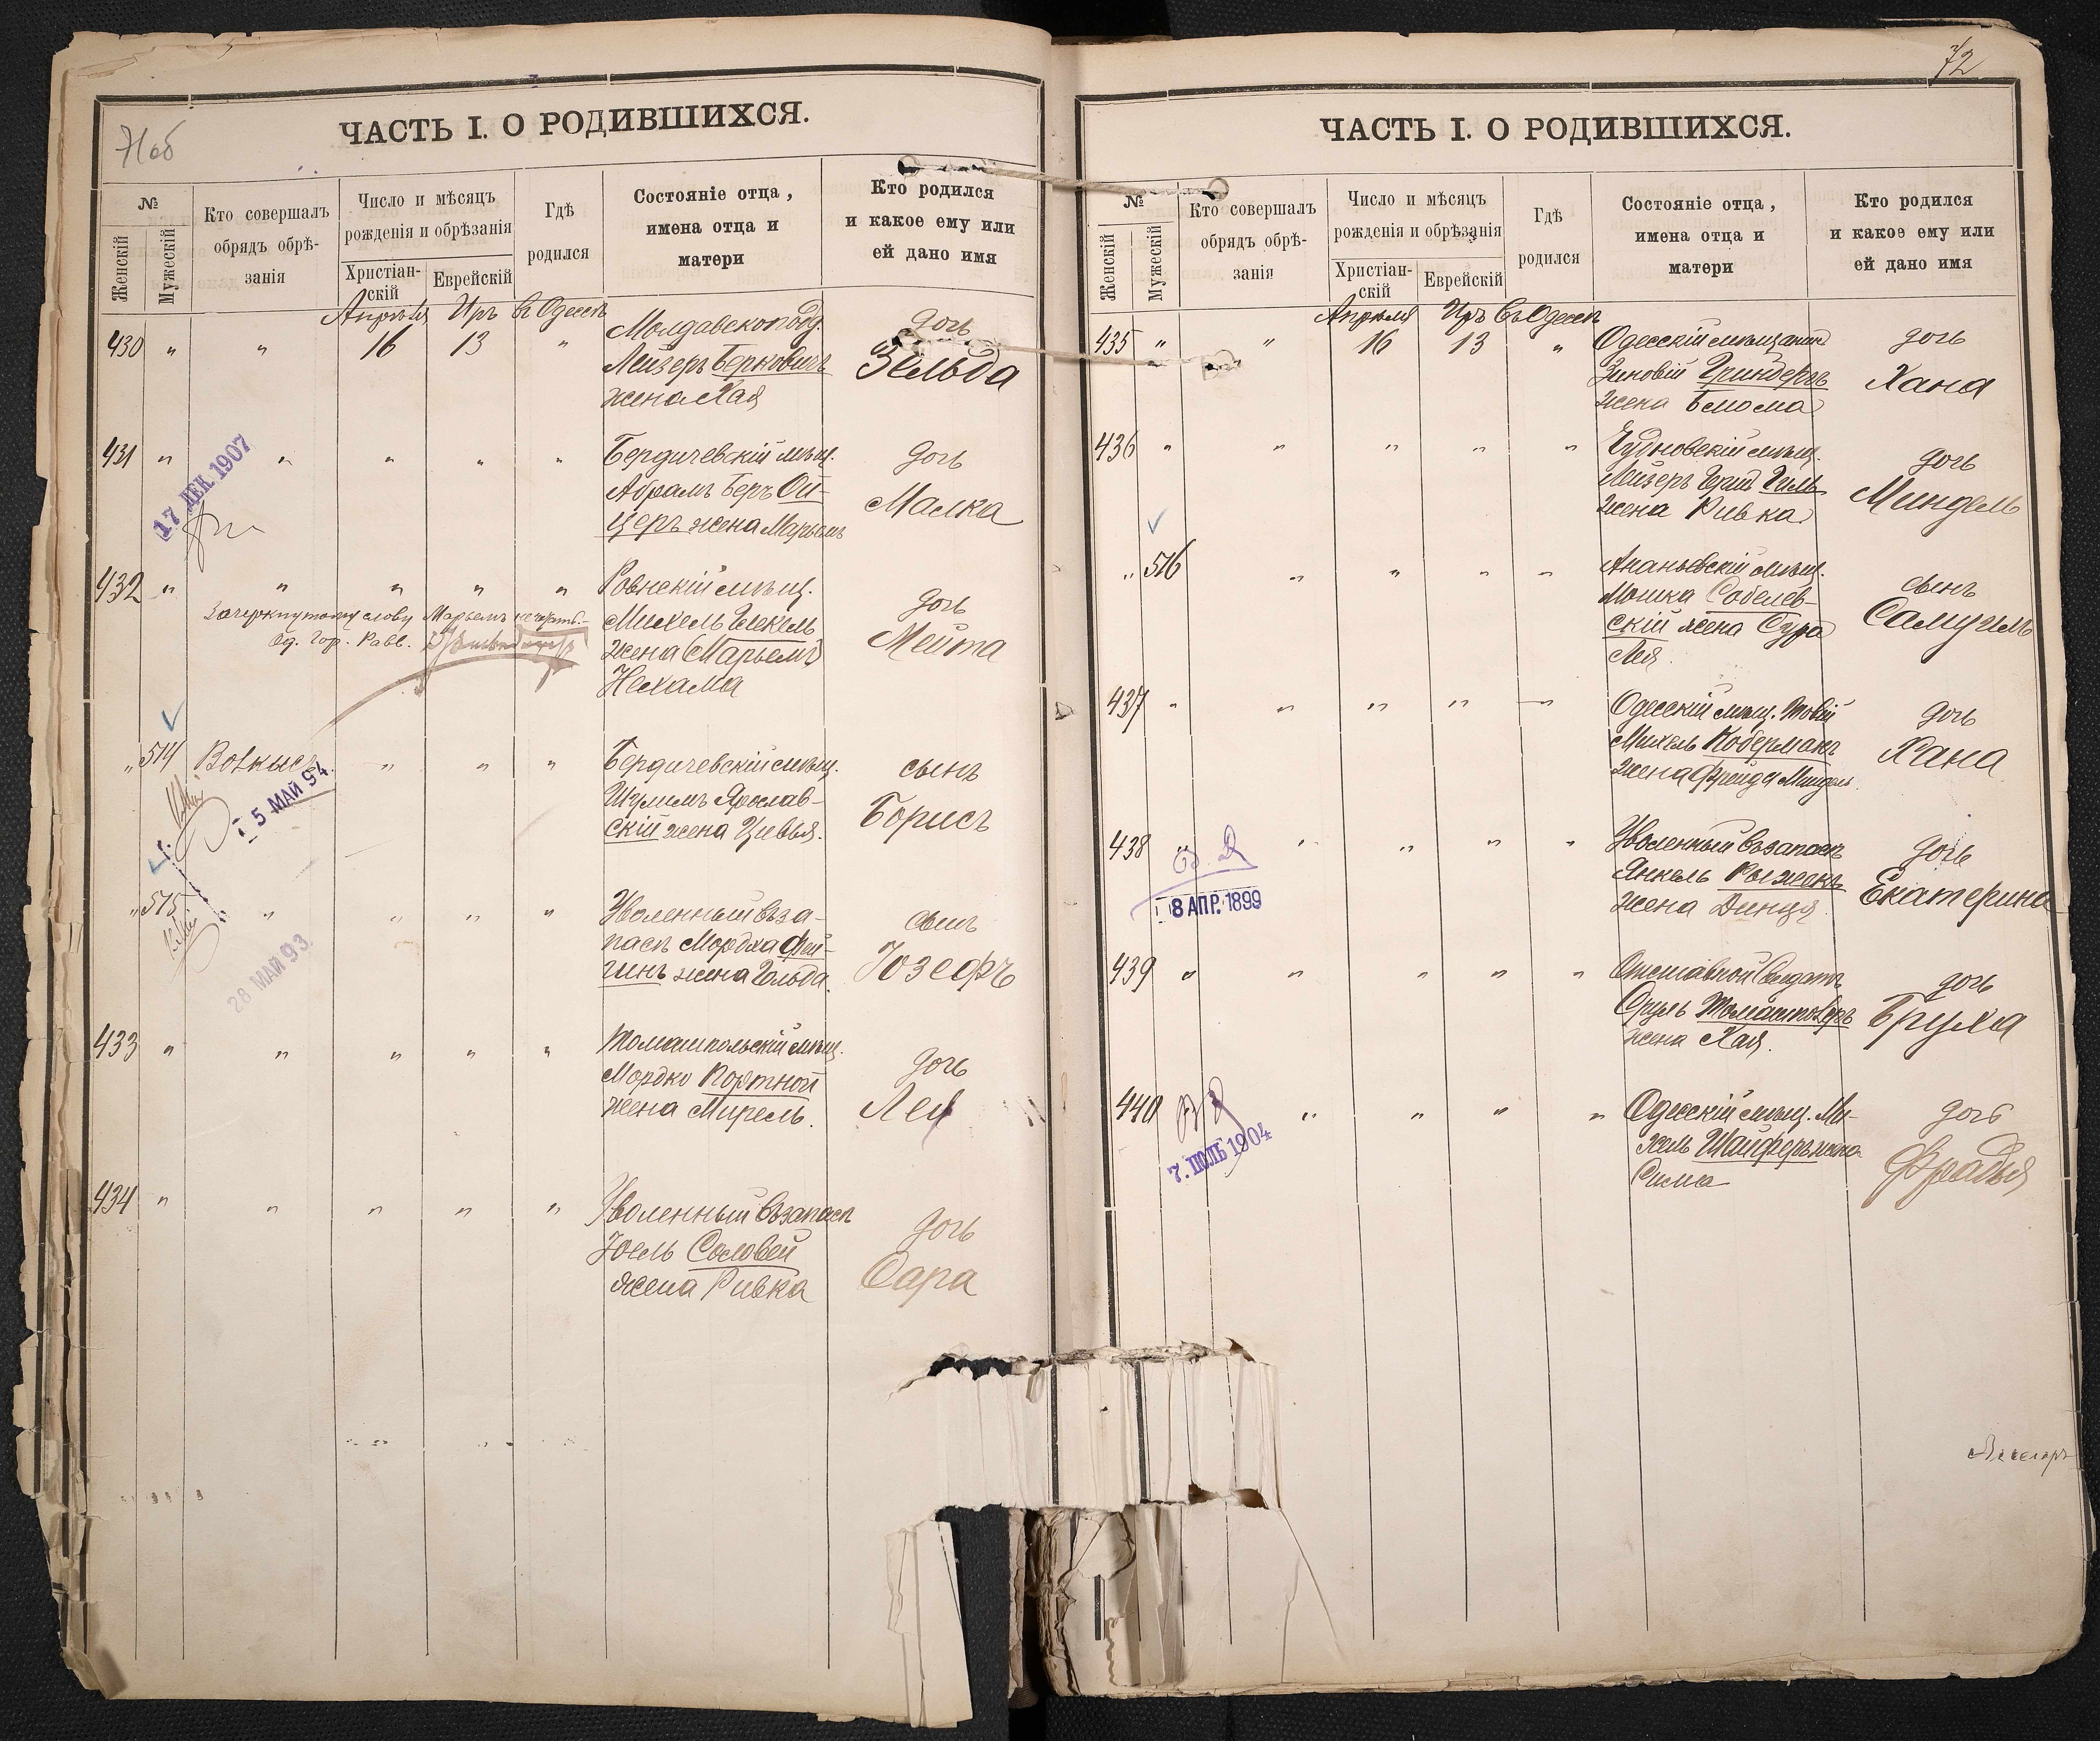 ЧАСТЬ I. О РОДИВШИХСЯ.
№
Женскій
Мужескій
Кто совершалъ
обрядъ обрѣ-
занія
Число и мѣсяцъ
рожденія и обрѣзанія
Христіан-
скій
Еврейскій
Гдѣ
родился
Состояніе отца,
имена отца и
матери
Кто родился
и какое ему или
ей дано имя
Апрѣля Иръ Въ Одессѣ
430 " " 16 13 "
Молдавско подд.
Лейзеръ Берковичъ
жена Хая
дочь
Зельда
431 " " " " "
Бердичевскій мѣщ.
Абрамъ Беръ Ой-
церъ жена Марьемъ
дочь
Малка
17 ДЕК 1907
432 " " " " "
Ровнскій мѣщ.
Михель
жена (Марьемъ)
Нехама
дочь
Мейта
Зачеркнутому слову Марьемъ не вѣрить.
Од. Гор. Равв.
" 514 " " "
Бердичевскій мѣщ.
Шулимъ Ярослав-
скій жена Цивья.
сынъ
Борисъ
5 МАЙ 94
" 515 " " " "
Уволенный въ за-
пасъ Мордха Фей-
гинъ жена Гольда.
сынъ
Іозефъ
28 МАЙ 93
433 " " " " "
Томашпольскій мѣщ.
Мордко Портной
жена Мирель.
дочь
Лея
434 " " " " "
Уволенный въ запасъ
Іоель Соловей
жена Ривка
дочь
Сара
72
ЧАСТЬ I. О РОДИВШИХСЯ.
№
Женскій
Мужескій
Кто совершалъ
обрядъ обрѣ-
занія
Число и мѣсяцъ
рожденія и обрѣзанія
Христіан-
скій
Еврейскій
Гдѣ
родился
Состояніе отца,
имена отца и
матери
Кто родился
и какое ему или
ей дано имя
Апрѣля Иръ Въ Одессѣ
435 " " 16 13 "
Одесскій мѣщанинъ
Зиновій Гринбергъ
жена Блюма
дочь
Хана
436 " " " " "
Чудновскій мѣщ.
Лейзеръ
жена Ривка
дочь
Миндель
" 516 " " " "
Ананьевскій мѣщ.
Мошка Соболев-
скій жена Сура
Лея
сынъ
Самуилъ
437 " " " " "
Одесскій мѣщ. Товій
Михель Коберманъ
жена Фрейда Миндель
дочь
Хана
438 " " " " "
Уволенный въ запасъ
Янкель
жена Динця
дочь
Екатерина
8 АПР. 1899
439 " " " " "
Отставной Солдатъ
Сруль Томашпольеръ
жена Хая.
дочь
Бруха
440 " " " "
Одесскій мѣщ. Ми-
хель Шайферъ жена
Сима
дочь
Фрадья
7. ІЮЛЬ 1904